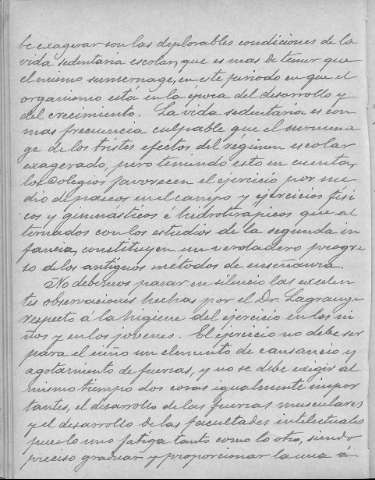 be exagerar son las deplorables condiciones de la
vida sedentaria escolar, que es mas de temer que
el mismo surmenage, en este periodo en que el
organismo está en la epoca del desarrollo y
del crecimiento. La vida sedentaria es con
mas frecuencia culpable que el surmena
ge de los tristes efectos del regimen escolar
exagerado, pero teniendo esto en cuenta,
los Colegios favorecen el ejercicio por me
dio de paseos en el campo y ejercicios fisi
cos y gimnasticos é hidroterapicos que al
ternados con los estudios de la segunda in
fancia, constituyen un verdadero progre
so de los antiguos métodos de enseñanza.
No debemos pasar en silencio las excelen
tes observaciones hechas por el Dr. Lagrange
respecto á la higiene del ejercicio en los ni
ños y en los jovenes. El ejercicio no debe ser
para el niño un elemento de cansancio y
agotamiento de fuerzas, y no se debe exigir al
mismo tiempo dos cosas igualmente impor
tantes, el desarrollo de las fuerzas musculares
y el desarrollo de las facultades intelectuales
pues lo uno fatiga tanto como lo otro, siendo
preciso graduar y proporcionar la una á